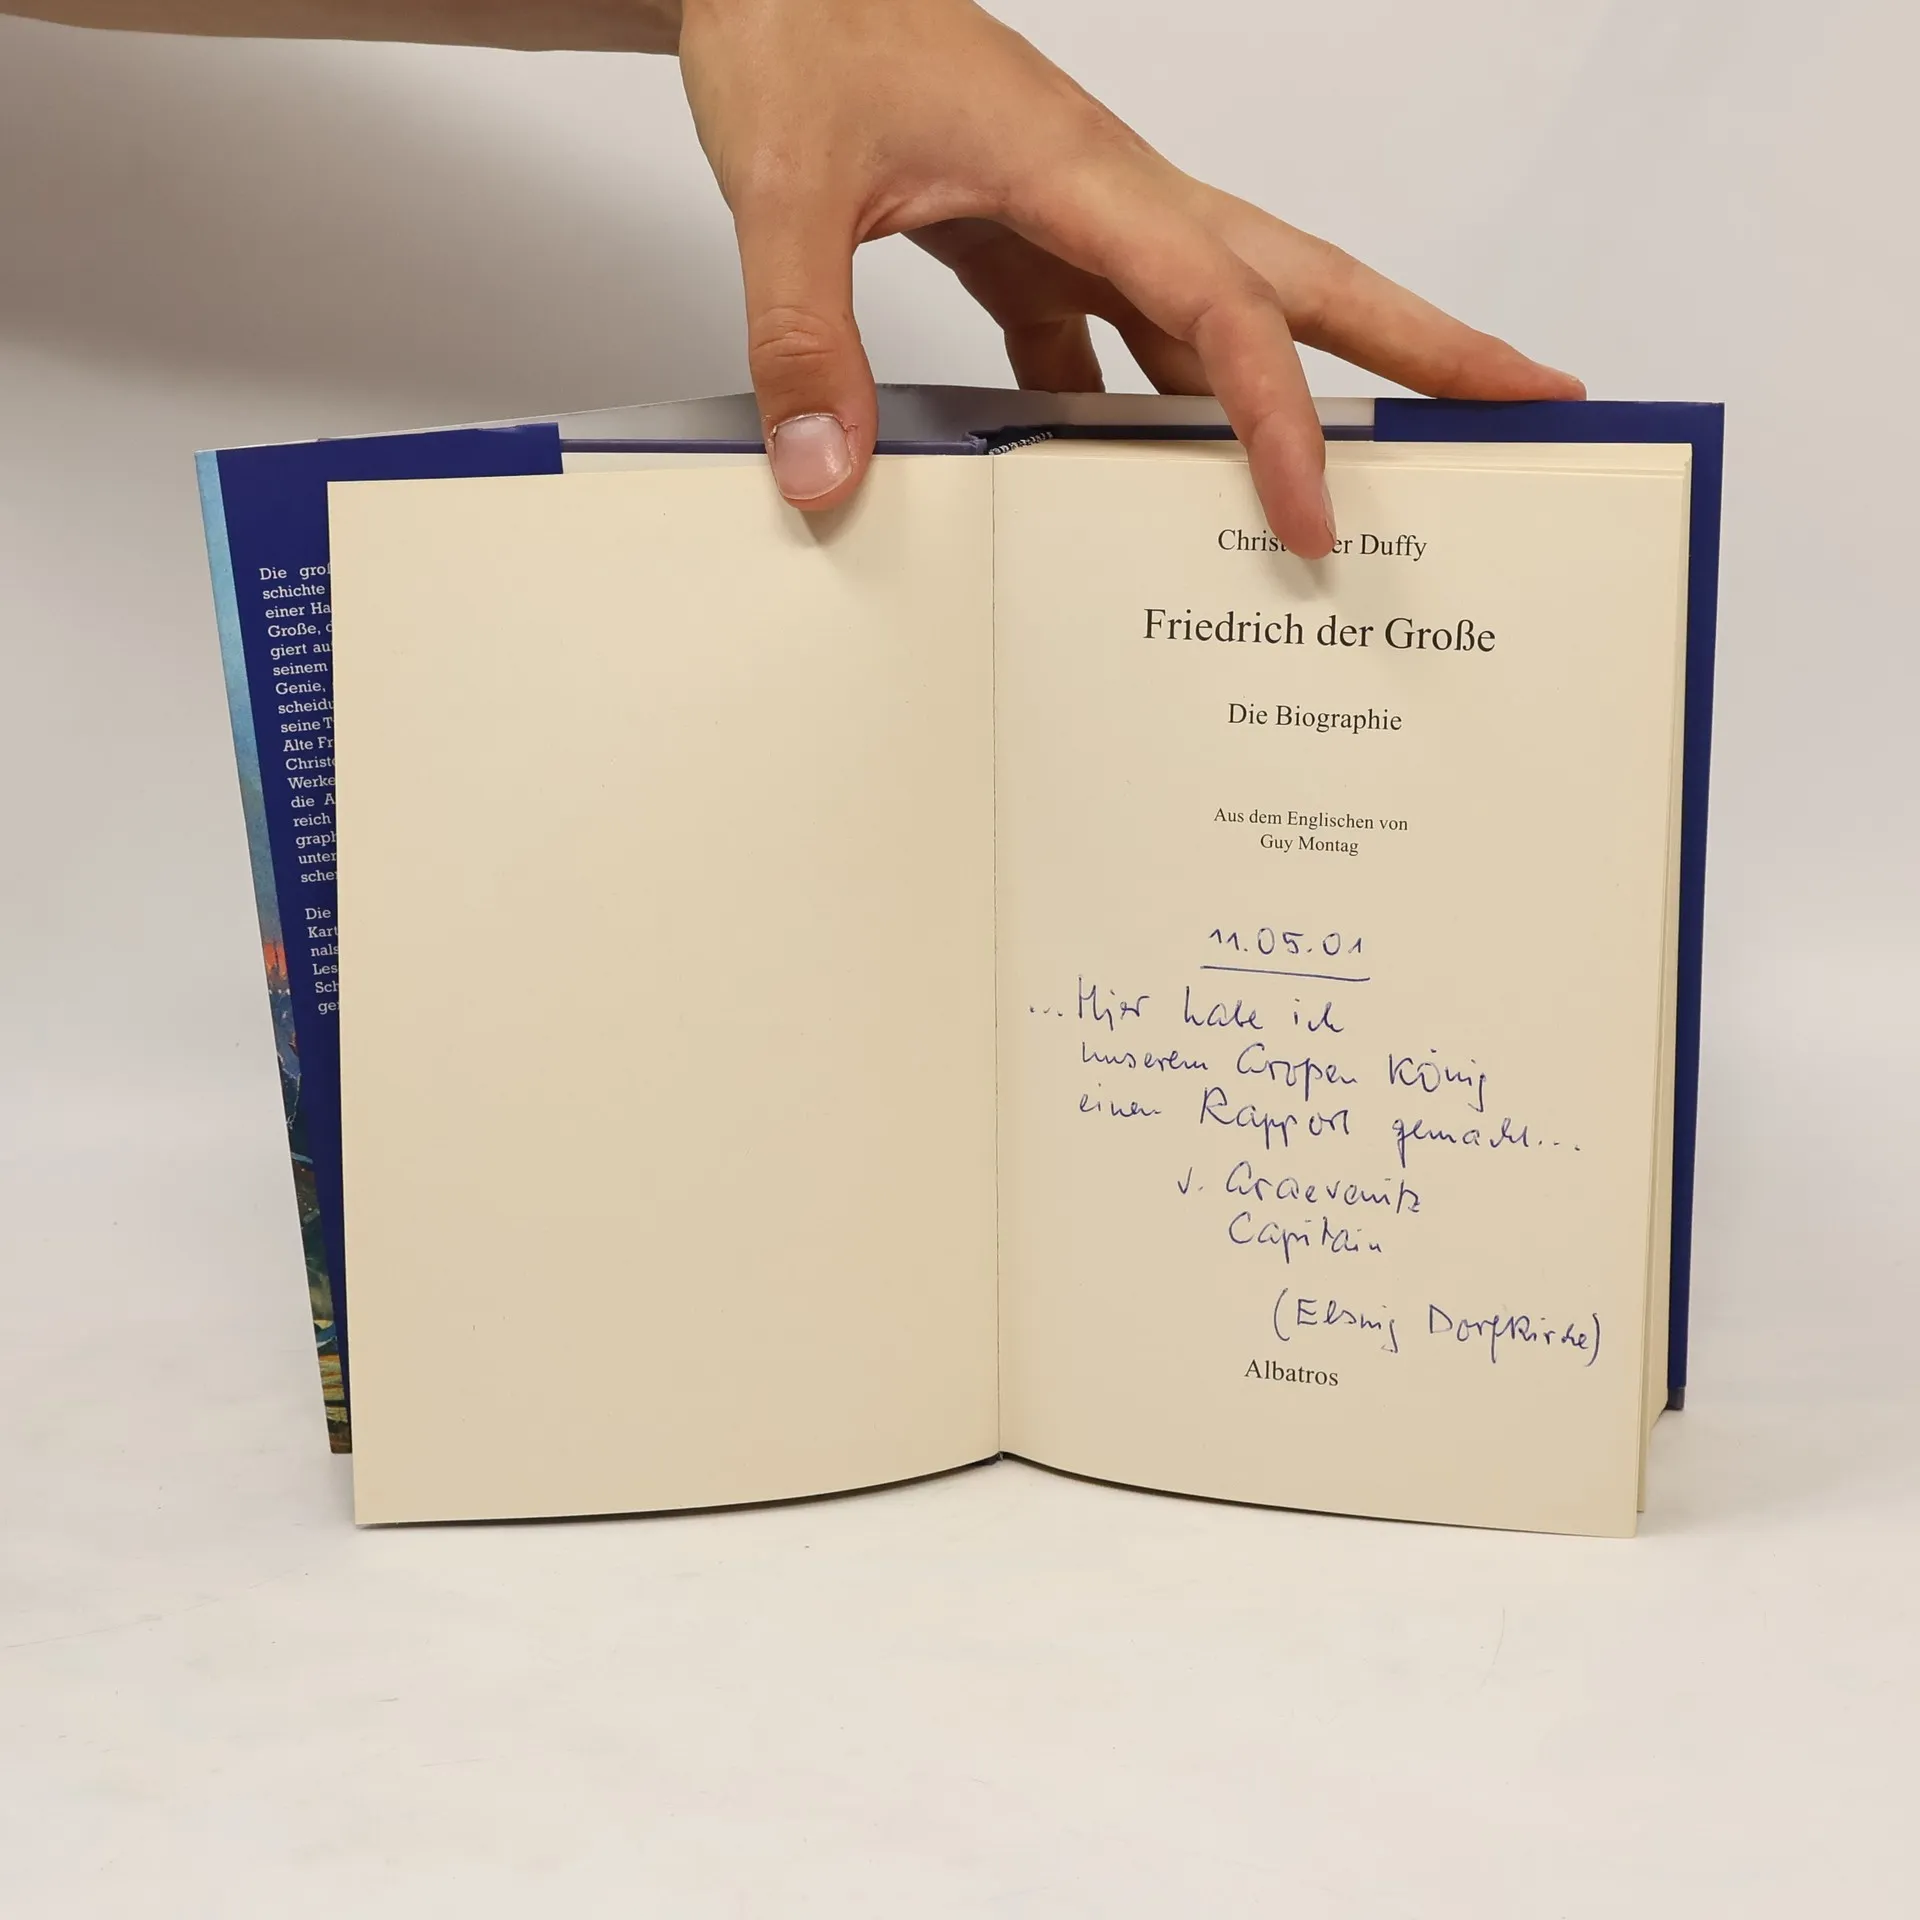 Die
schichte
einer Ha
Große, d
giert au
seinem
Genie,
scheidu
seine T
Alte Fr
Christ
Werke
die A
reich
graph
unter
sche
Die
Kart
nals
Les
Sch
ge
Duffy
Friedrich der Große
Die Biographie
Aus dem Englischen von
Guy Montag
11.05.01
... Hier habe ich
unserem Großen König
einen Rapport gemacht...
v. Graevenitz
Capitain
(Elsnig Dorfkirche)
Albatros